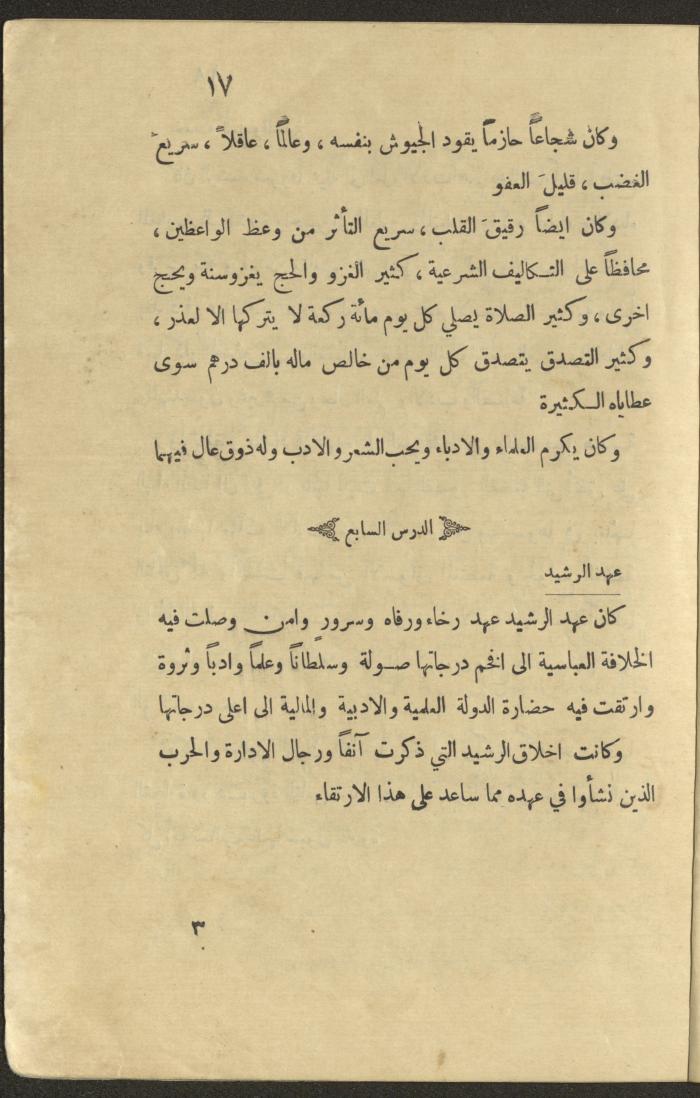 ١٧
وكان شجاعاً حازماً يقود الجيوش بنفسه ، وعالماً ، عاقلاً ، سريع
الغضب ، قليلَ العفو
وكان ايضاً رقيقَ القلب ، سريع التأثر من وعظ الواعظين ،
محافظاً على التكاليف الشرعية ، كثير الغزو والحج يغزو سنة ويحج
اخرى ، وكثير الصلاة يصلي كل يوم مائة ركعة لا يتركها الا لعذر ،
وكثير التصدق يتصدق كل يوم من خالص ماله بالف درهم سوى
عطاياه الكثيرة
وكان يكرم العلماء والادباء ويحب الشعر والادب وله ذوق عال فيهما
الدرس السابع
عهد الرشيد
كان عهد الرشيد عهد رخاء ورفاه وسرورٍ وامن وصلت فيه
الخلافة العباسية الى افخم درجاتها صولة وسلطاناً وعلماً وادباً وثروة
وارتقت فيه حضارة الدولة العلمية والادبية والمالية الى اعلى درجاتها
وكانت اخلاق الرشيد التي ذكرت آنفاً ورجال الادارة والحرب
الذين نشأوا في عهده مما ساعد على هذا الارتقاء
٣